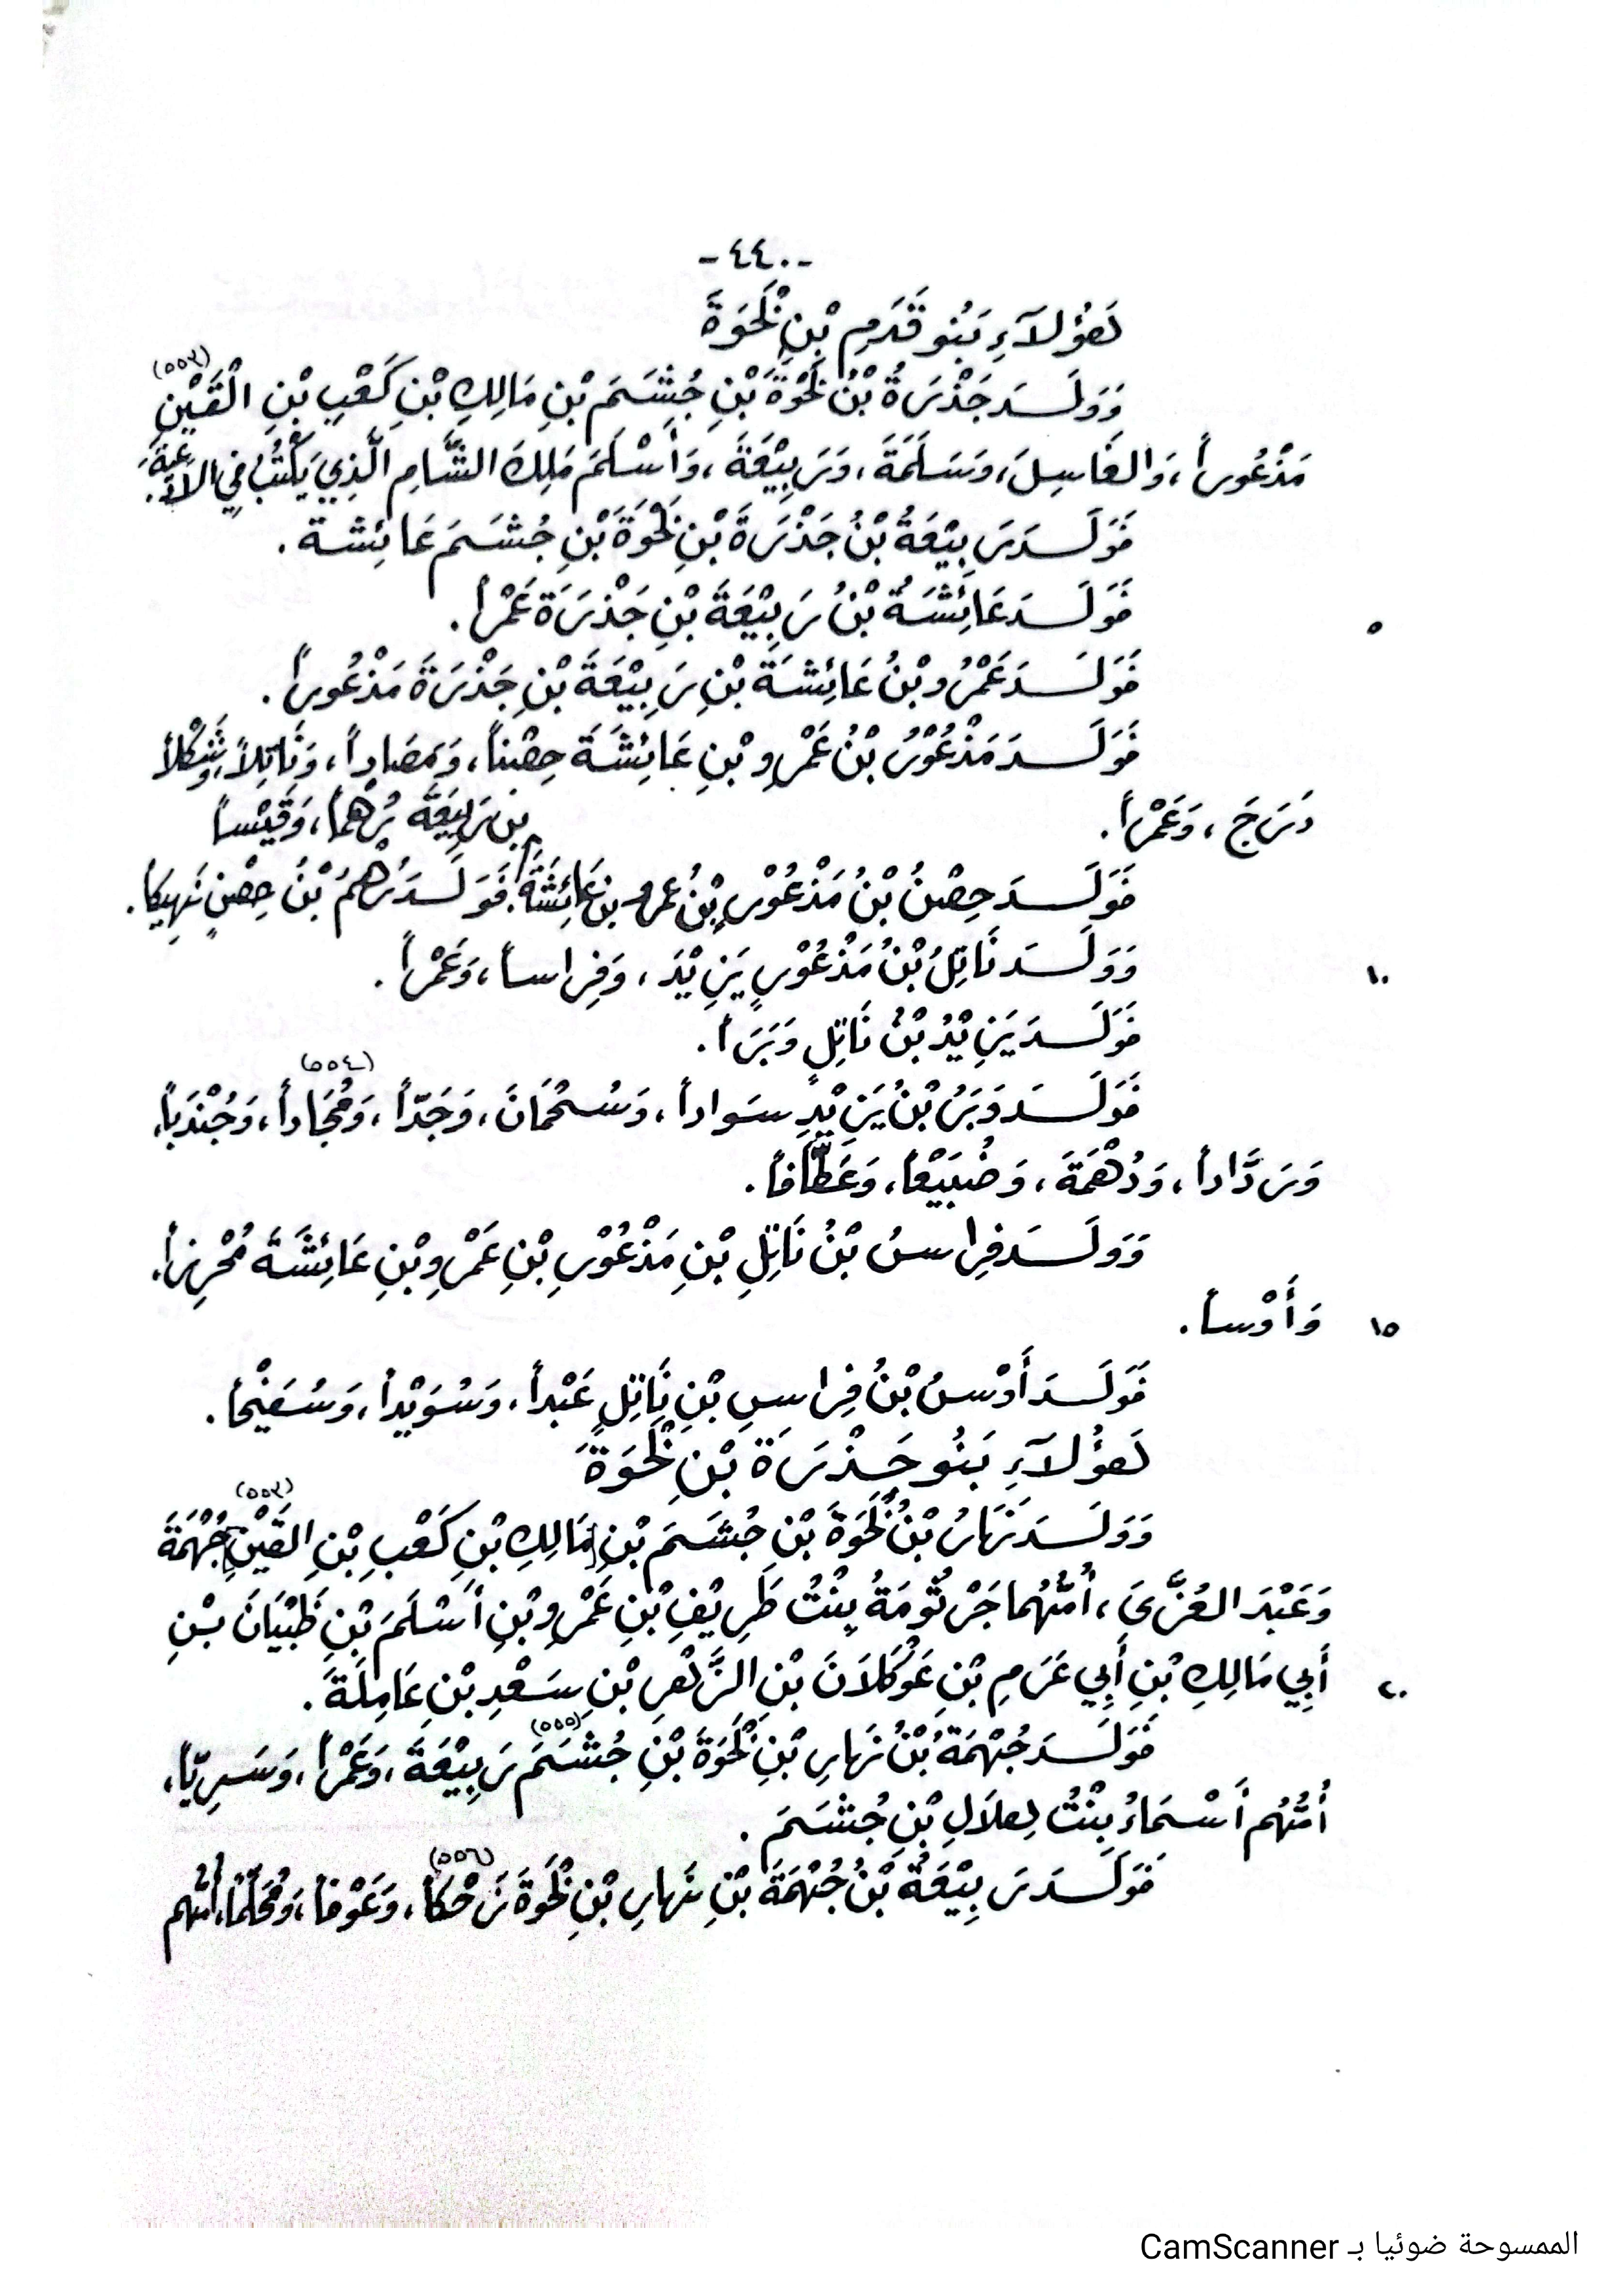 -٤٤٠-
هَؤُلَآءِ بَنُو قَدَمِ بْنِ لَخْوَةَ
وَوَلَــدَ جَذْرَةُ بْنُ لَخْوَةَ بْنِ جُشَمَ بْنِ مَالِكِ بْنِ كَعْبِ بْنِ الْقَيْنِ (٥٥٣)
مَذْعُوراً، وَالغَاسِلَ، وَسَلَمَةَ، وَرَبِيْعَةَ، وَأَسْلَمَ مَلِكَ الشَّامِ الَّذِي يَكْتُبُ فِي الأَدْعِيَةِ.
فَوَلَــدَ رَبِيْعَةُ بْنُ جَذْرَةَ بْنِ لَخْوَةَ بْنِ جُشَمَ عَائِشَةَ.
٥ فَوَلَــدَ عَائِشَةُ بْنُ رَبِيْعَةَ بْنِ جَذْرَةَ عَمْراً.
فَوَلَــدَ عَمْرُو بْنُ عَائِشَةَ بْنِ رَبِيْعَةَ بْنِ جَذْرَةَ مَذْعُوراً.
فَوَلَــدَ مَذْعُوْرُ بْنُ عَمْرِو بْنِ عَائِشَةَ حِصْناً، وَمَصَاداً، وَنَاتِلاً، وَشَكْلاً
دَرَجَ، وَعَمْراً.
فَوَلَــدَ حِصْنُ بْنُ مَذْعُوْرِ بْنُ عمرو بن عَائِشَةَ بن رَبِيْعَةَ بُرْهُماً، وَقَيْساً. فَوَلَــدَ بُرْهُمُ بْنُ حِصْنٍ نَهِيكاً.
١٠ وَوَلَــدَ نَاتِلُ بْنُ مَذْعُوْرٍ يَزِيْدَ، وَفِرَاساً، وَعَمْراً.
فَوَلَــدَ يَزِيْدُ بْنُ نَاتِلٍ وَبَرَاً.
فَوَلَــدَ وَبَرُ بْنُ يَزِيْدٍ سَوَاداً، وَسُحْمَانَ، وَجَدّاً، وَمُجَاداً (٥٥٤)، وَجُنْدَباً،
وَرَدَّاداً، وَدُهْمَةَ، وَضُبَيْعاً، وَعَطَّافاً.
وَوَلَــدَ فِرَاسُ بْنُ نَاتِلِ بْنِ مَذْعُوْرِ بْنِ عَمْرِو بْنِ عَائِشَةَ مُحْرِزاً،
١٥ وَأَوْساً.
فَوَلَــدَ أَوْسُ بْنُ فِرَاسِ بْنِ نَاتِلٍ عَبْداً، وَسُوَيْداً، وَسُفَيْحاً.
هَؤُلَآءِ بَنُو جَــذْرَةَ بْنِ لَخْوَةَ
وَوَلَــدَ نَهَارُ بْنُ لَخْوَةَ بْنِ جُشَمَ بْنِ [مَالِكِ بْنِ كَعْبِ بْنِ القَيْنِ] (٥٥٣) جُهْمَةَ
وَعَبْدَ العُزَّى، أُمُّهُمَا جَرْثُومَةُ بِنْتُ طَرِيْفِ بْنِ عَمْرِو بْنِ أَسْلَمَ بْنِ ظَبْيَانَ بْنِ
٢٠ أَبِي مَالِكِ بْنِ أَبِي عَرَمِ بْنِ عَوْكَلَانَ بْنِ الزَّهْرِ بْنِ سَعْدِ بْنِ عَامِلَةَ.
فَوَلَــدَ جُهْمَةُ بْنُ نَهَارِ بْنِ لَخْوَةَ بْنِ جُشَمَ (٥٥٥) رَبِيْعَةَ، وَعَمْراً، وَسَرِيّاً،
أُمُّهُم أَسْمَاءُ بِنْتُ هِلَالِ بْنِ جُشَمَ.
فَوَلَــدَ رَبِيْعَةُ بْنُ جُهْمَةَ بْنِ نَهَارِ بْنِ لَخْوَةَ زَحْكاً (٥٥٦)، وَعَوْفاً، وَمُحَلَّماً، أُمُّهُم
الممسوحة ضوئيا بـ CamScanner